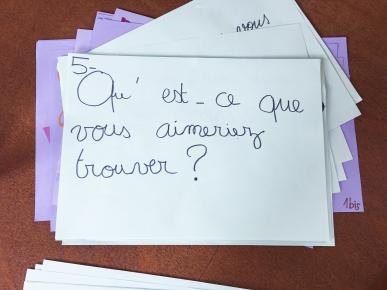 vous
5-
Qu' est-ce que
vous aimeriez
trouver ?
1bis